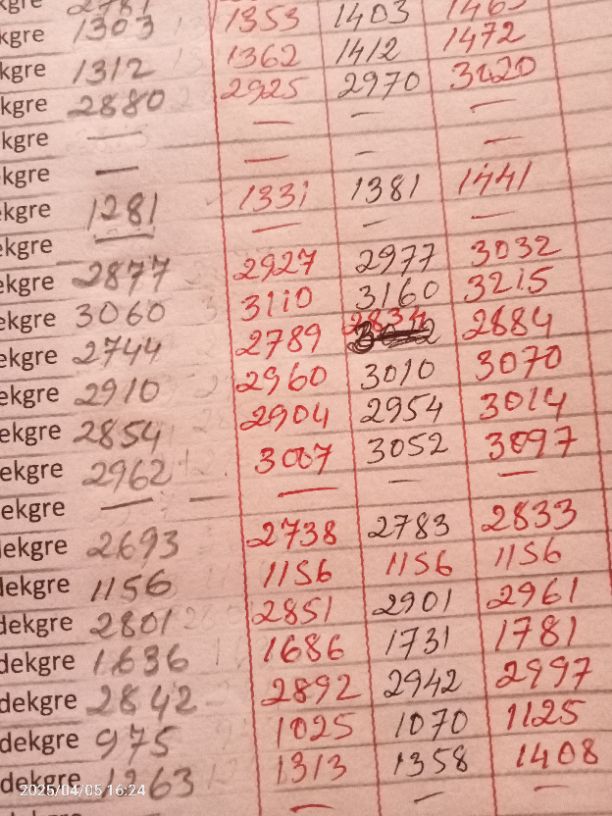 2781
kgre 1303 1353 1403 146
kgre 1312 1362 1412 1472
kgre 2880 2925 2970 3020
kgre — — — —
kgre — — — —
ekgre 1281 1331 1381 1441
ekgre — — — —
ekgre 2877 2927 2977 3032
ekgre 3060 3110 3160 3215
ekgre 2744 2789 2834 2884
ekgre 2910 2960 3010 3070
ekgre 2854 2904 2954 3014
ekgre 2962 3007 3052 3097
ekgre — — — —
dekgre 2693 2738 2783 2833
dekgre 1156 1156 1156 1156
dekgre 2801 2851 2901 2961
dekgre 1636 1686 1731 1781
dekgre 2842 2892 2942 2997
dekgre 975 1025 1070 1125
dekgre 1263 1313 1358 1408
— — —
2025/04/05 16:24